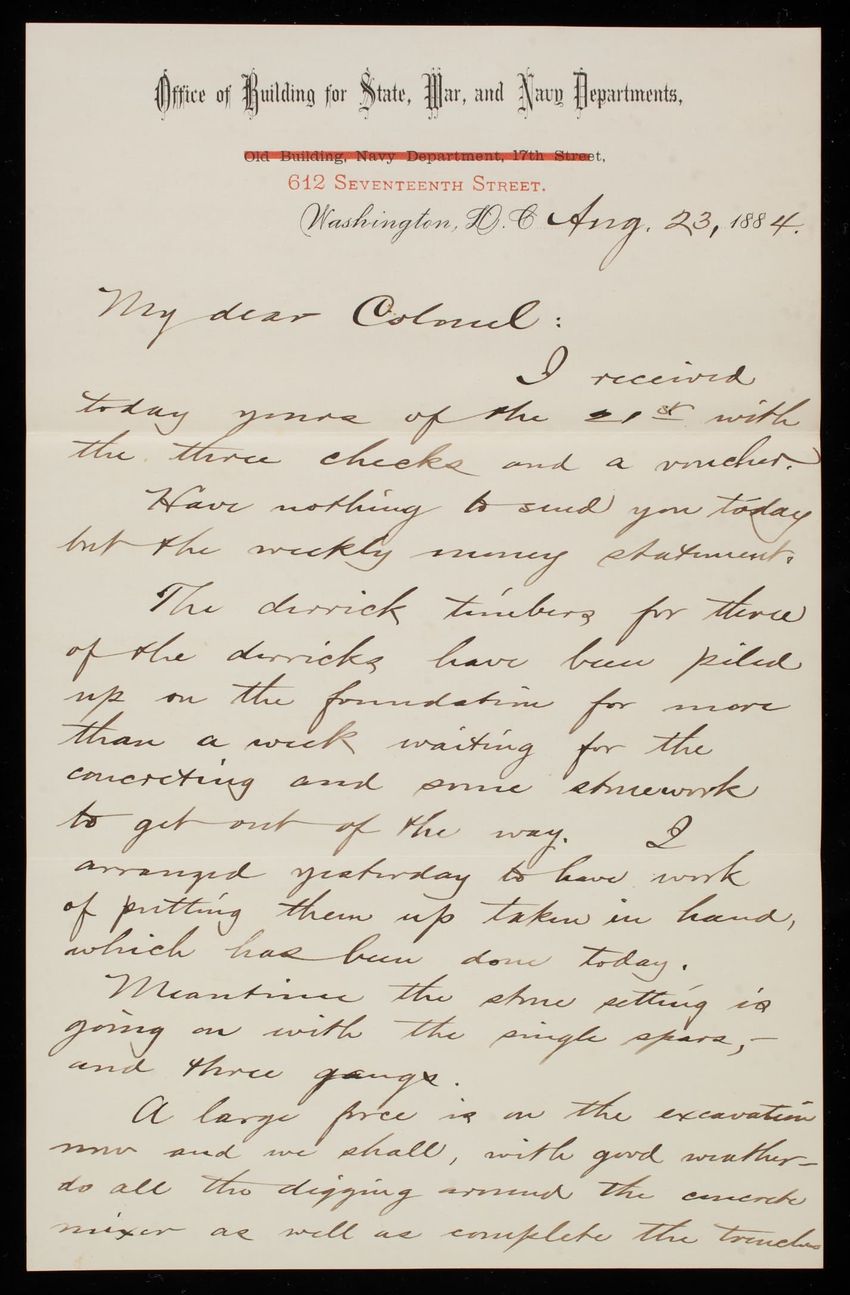 Office of Building for State, War, and Navy Departments,
Old Building, Navy Department, 17th Street,
612 SEVENTEENTH STREET.
Washington, D. C. Aug. 23, 1884.
My dear Colonel:
I received
today yours of the 21st with
the three checks and a voucher.
Have nothing to send you today
but the weekly money statement.
The derrick timbers for three
of the derricks have been piled
up on the foundation for more
than a week waiting for the
concreting and some stonework
to get out of the way. I
arranged yesterday to have work
of putting them up taken in hand,
which has been done today.
Meantime the stone setting is
going on with the single spars,—
and three gangs.
A large force is on the excavation
now and we shall, with good weather—
do all the digging around the concrete
mixer as well as complete the trenches